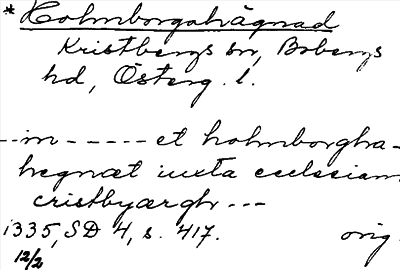 * Holmborgahägnad
Kristbergs sn, Bobergs
hd, Österg. l.
--in----- et holmborgha-
hegnæt iuxta ecclesiam
cristbyærgh ---
1335, SD 4, s. 417. orig.
12/2